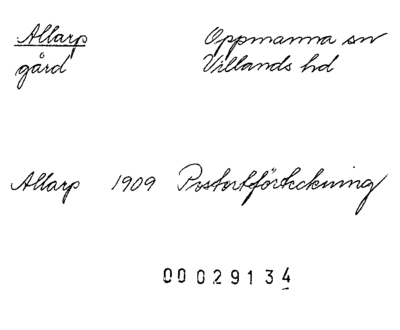 Allarp Oppmanna sn
gård Villands hd
Allarp 1909 Postortförteckning
00029134